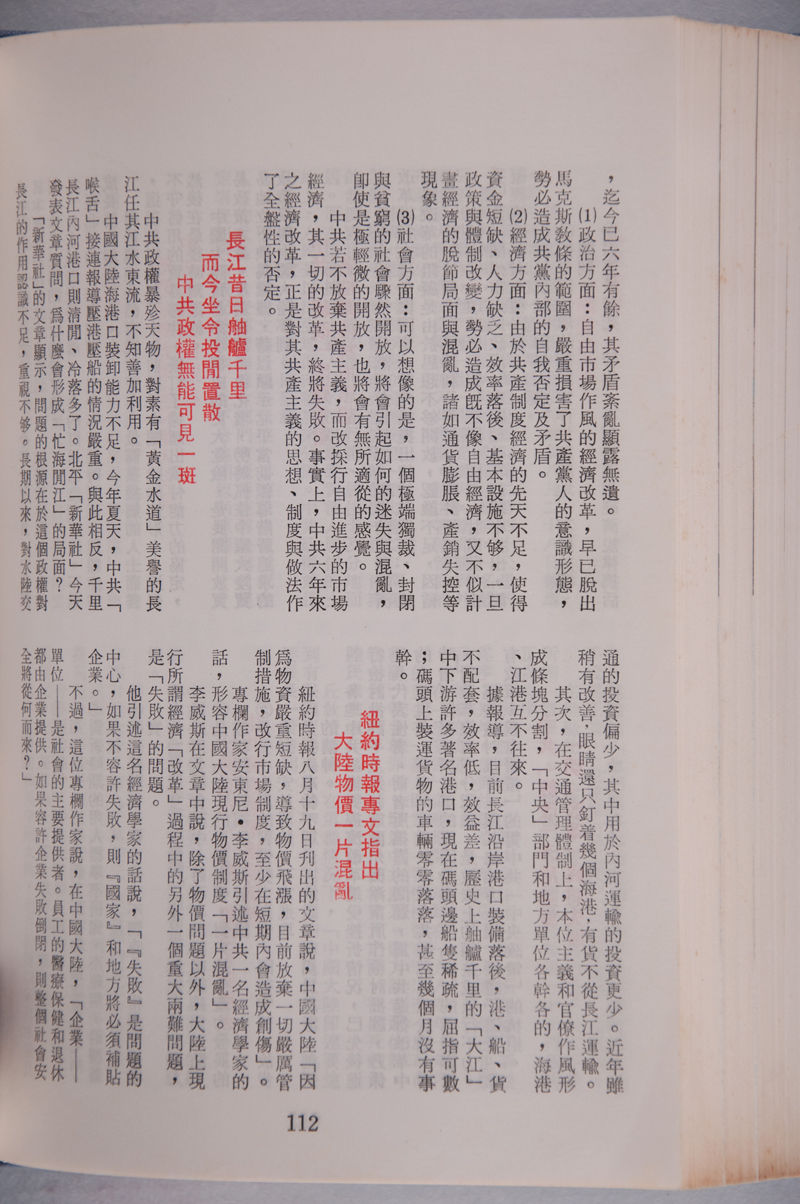 ，迄今已六年有餘，其矛盾紊亂顯露無遺。
⑴政治方面：自由市場作風的經濟改革，早已脫出
馬克斯教條的範圍，嚴重損害了共產黨人的意識形態，
勢必造成共黨內部的自我否定及矛盾。
⑵經濟方面：由於共產制度經濟的先天不足，使得
資金短缺、人力缺乏、效率落後、基本設施不够，一旦
政策與體制改變，勢必造成旣不像自由經濟，又不似計
畫經濟的脫節局面與混亂，諸如通貨膨脹、產銷失控等
現象。
⑶社會方面：可以想像的是，一個極端獨裁、封閉
與貧窮的社會驟然開放，將會引起如何的迷失與混亂，
卽使是極輕微的開放，也將會有無所適從的感覺。
中共若不放棄共產主義，而改採行自由進步的市場
經濟，其一切的改革，終將失敗。事實上，中共六年來
之經濟改革，正是對其共產主義的思想、制度與做法作
了全盤性的否定。
長江昔日舳艫千里
而今坐令投閒置散
中共政權無能可見一斑
中共政權暴殄天物，對素有「黃金水道」美譽的長
江任其江水東流，不知善加利用。
中國大陸海港口裝卸能力不足，今年夏天，中共「
喉舌」接連報導壓港壓船的情況嚴重。與此相反，千里
長江內河港口則清閒、冷落多了。北平「新華社」今天
發表文章質問，爲什麼會形成「忙海閒江」的局面？
「新華社」的文章顯示，問題的根源在於這個政權對
長江的作用認識不足，重視不够。長期以來，對水陸交
通的投資偏少，其中用於內河運輸的投資更少。近年雖
稍有改善，眼睛還只釘着幾個海港，有貨不從長江運輸。
其次，在交通管理體制上，本位主義和官僚作風形
成條塊分割，「中央」部門和地方單位各幹各的，海港
、江港互不往來。
據報導，目前長江沿岸港口裝備落後，港、船、貨
不配套，效率低，效益差，歷史上舳艫千里的「大江」
中下游許多著名港口，現在碼頭邊船隻稀疏，屈指可數
；碼頭上裝運貨物的車輛零零落落，甚至幾個月沒有事
幹。
紐約時報專文指出
大陸物價一片混亂
紐約時報八月十九日刋出的文章說，中國大陸「因
爲物資嚴重短缺，導致物價飛漲，目前放棄一切嚴厲管
制措施，改行市場制度，至少在短期內會造成創傷」。
專欄作家安東尼•李威斯引述中共一名經濟學家的
話，形容中國大陸現行物價制度「一片混亂」。
李威斯在文章中說，除了物價問題以外，大陸上現
行所謂經濟「改革」過程中的另外一個重大兩難問題，
是「失敗」的問題。
他引述這名經濟學家的話說，「『失敗』是問題的
中心，如果不容許失敗，則『國家』和地方將必須補貼
企業。」
不過，這位專欄作家說，在中國大陸，「企業——
單位——是社會的主要提供者。員工的醫療保健和退休
都由企業提供。如果容許企業失敗倒閉，則整個社會安
全將從何而來？」
112